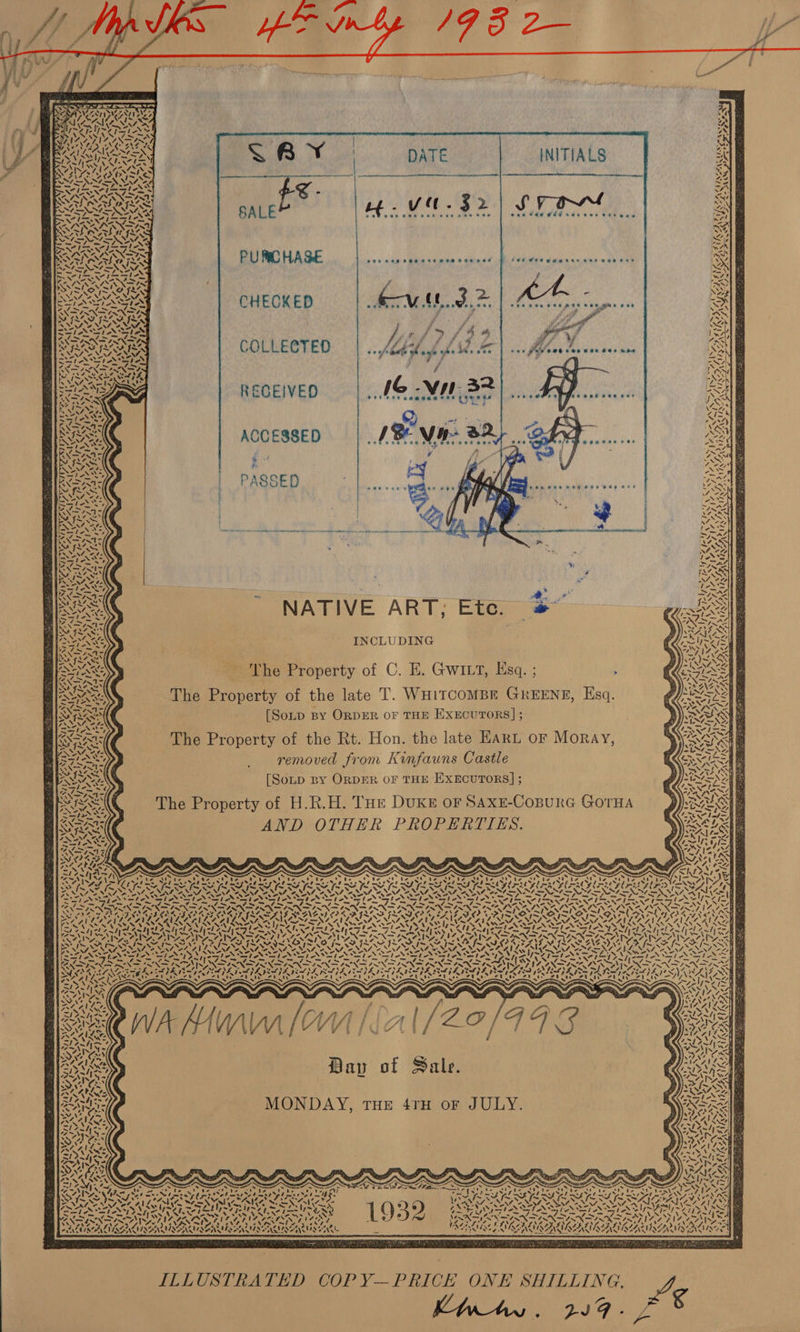 4th July 1932
SBY DATE INITIALS
SALE 4. VII. 32
PURCHASE
CHECKED 6 VII. 32
COLLECTED
RECEIVED 16 -VII. 32
ACCESSED 18 VII- 32
PASSED
NATIVE ART, Etc.
INCLUDING
The Property of C. E. GWILT, Esq. ;
The Property of the late T. WHITCOMBE GREENE, Esq.
[SOLD BY ORDER OF THE EXECUTORS] ;
The Property of the Rt. Hon. the late EARL OF MORAY,
removed from Kinfauns Castle
[SOLD BY ORDER OF THE EXECUTORS] ;
The Property of H.R.H. THE DUKE OF SAXE-COBURG GOTHA
AND OTHER PROPERTIES.
WA/HMM/CM/Sal/20/993
Day of Sale.
MONDAY, THE 4TH OF JULY.
1932
ILLUSTRATED COPY—PRICE ONE SHILLING.